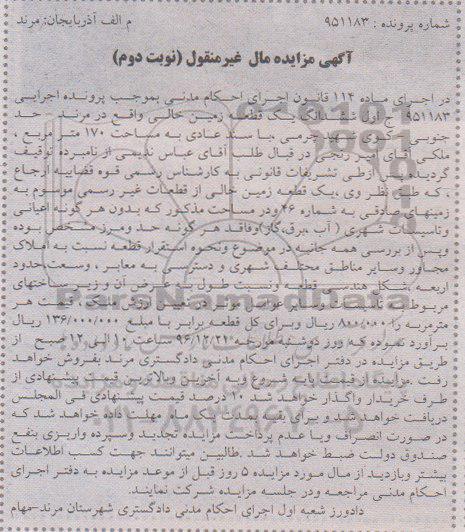 شماره پرونده : ۹۵۱۱۸۳ م الف آذربایجان: مرند
آگهی مزایده مال غیرمنقول (نوبت دوم)
در اجرای ماده ۱۱۴ قانون اجرای احکام مدنی بموجب پرونده اجرایی
۹۵۱۱۸۳ اول ششدانگ یک قطعه زمین خالی واقع در مرند
جنوبی با سند عادی به مساحت ۱۷۰ متر مربع ،
ملکی آقای امیر رنجی در قبال طلب آقای عباس از نامبرده توقیف
گردیده طی تشریفات قانونی به کارشناس رسمی قوه قضاییه ارجاع
که طبق نظر وی ،یک قطعه زمین خالی از قطعات غیر رسمی موسوم به
زمینهای صادقی به شماره ۴۶ ودر مساحت مذکور که بدون هر گونه اعیانی
وتاسیسات شهری ( آب ،برق،گاز)وفاقد هر گونه حد ومرز مشخص بوده
وپس از بررسی همه جانبه در موضوع ونحوه استقرار قطعه نسبت به املاک
مجاور وسایر مناطق شهری و دسترسی به معابر ، وسعت،حدود
اربعه ،شکل هندسی قطعه ونسبت طول به عرض آن و زیرساختهای
مربوطه هر
مترمربع را ۸۰۰/۰۰۰ ریال وبرای کل قطعه برابر با مبلغ ۱۳۶/۰۰۰/۰۰۰ ریال
برآورد نموده که روز دوشنبه مورخه ۹۶/۱۲/۲۱ ساعت ۱۰ الی ۱۲ صبح از
طریق مزایده در دفتر اجرای احکام مدنی دادگستری مرند بفروش خواهد
رفت .مزایده از قیمت پایه شروع وبه آخرین وبالاترین قیمت پیشنهادی از
طرف خریدار واگذار خواهد شد ۱۰ درصد قیمت پیشنهادی فی المجلس
دریافت خواهد شد و برای مابقی یک ماه مهلت داده خواهد شد که
در صورت انصراف ویا عدم پرداخت مزایده تجدید وسپرده واریزی بنفع
صندوق دولت ضبط خواهد شد .طالبین میتوانند جهت کسب اطلاعات
بیشتر وبازدید از مال مورد مزایده ۵ روز قبل از موعد مزایده به دفتر اجرای
احکام مدنی مراجعه ودر جلسه مزایده شرکت نمایند.
دادورز شعبه اول اجرای احکام مدنی دادگستری شهرستان مرند-مهام
ParsNamadData